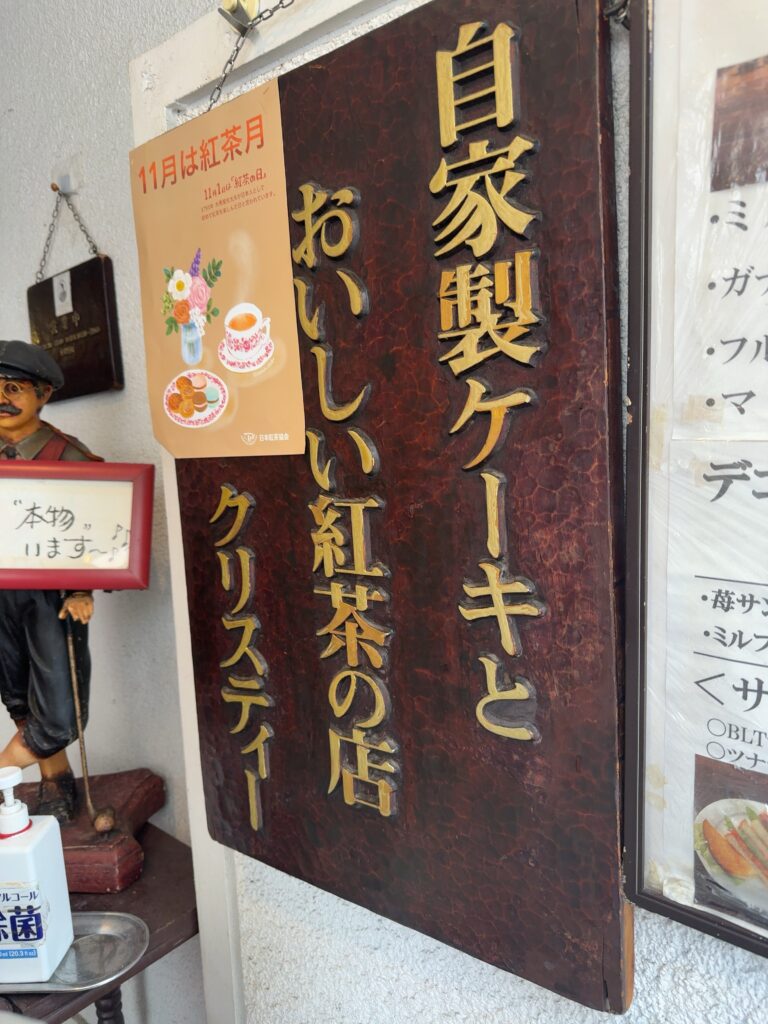 自家製ケーキと
おいしい紅茶の店
クリスティー
11月は紅茶月
11月1日は「紅茶の日」
日本紅茶協会
"本物"
います〜♪♪
・ミ
・ガナ
・フル
・マ
デコ
・苺サン
・ミルフ
＜サ
○BLT
○ツナ
アルコール
除菌